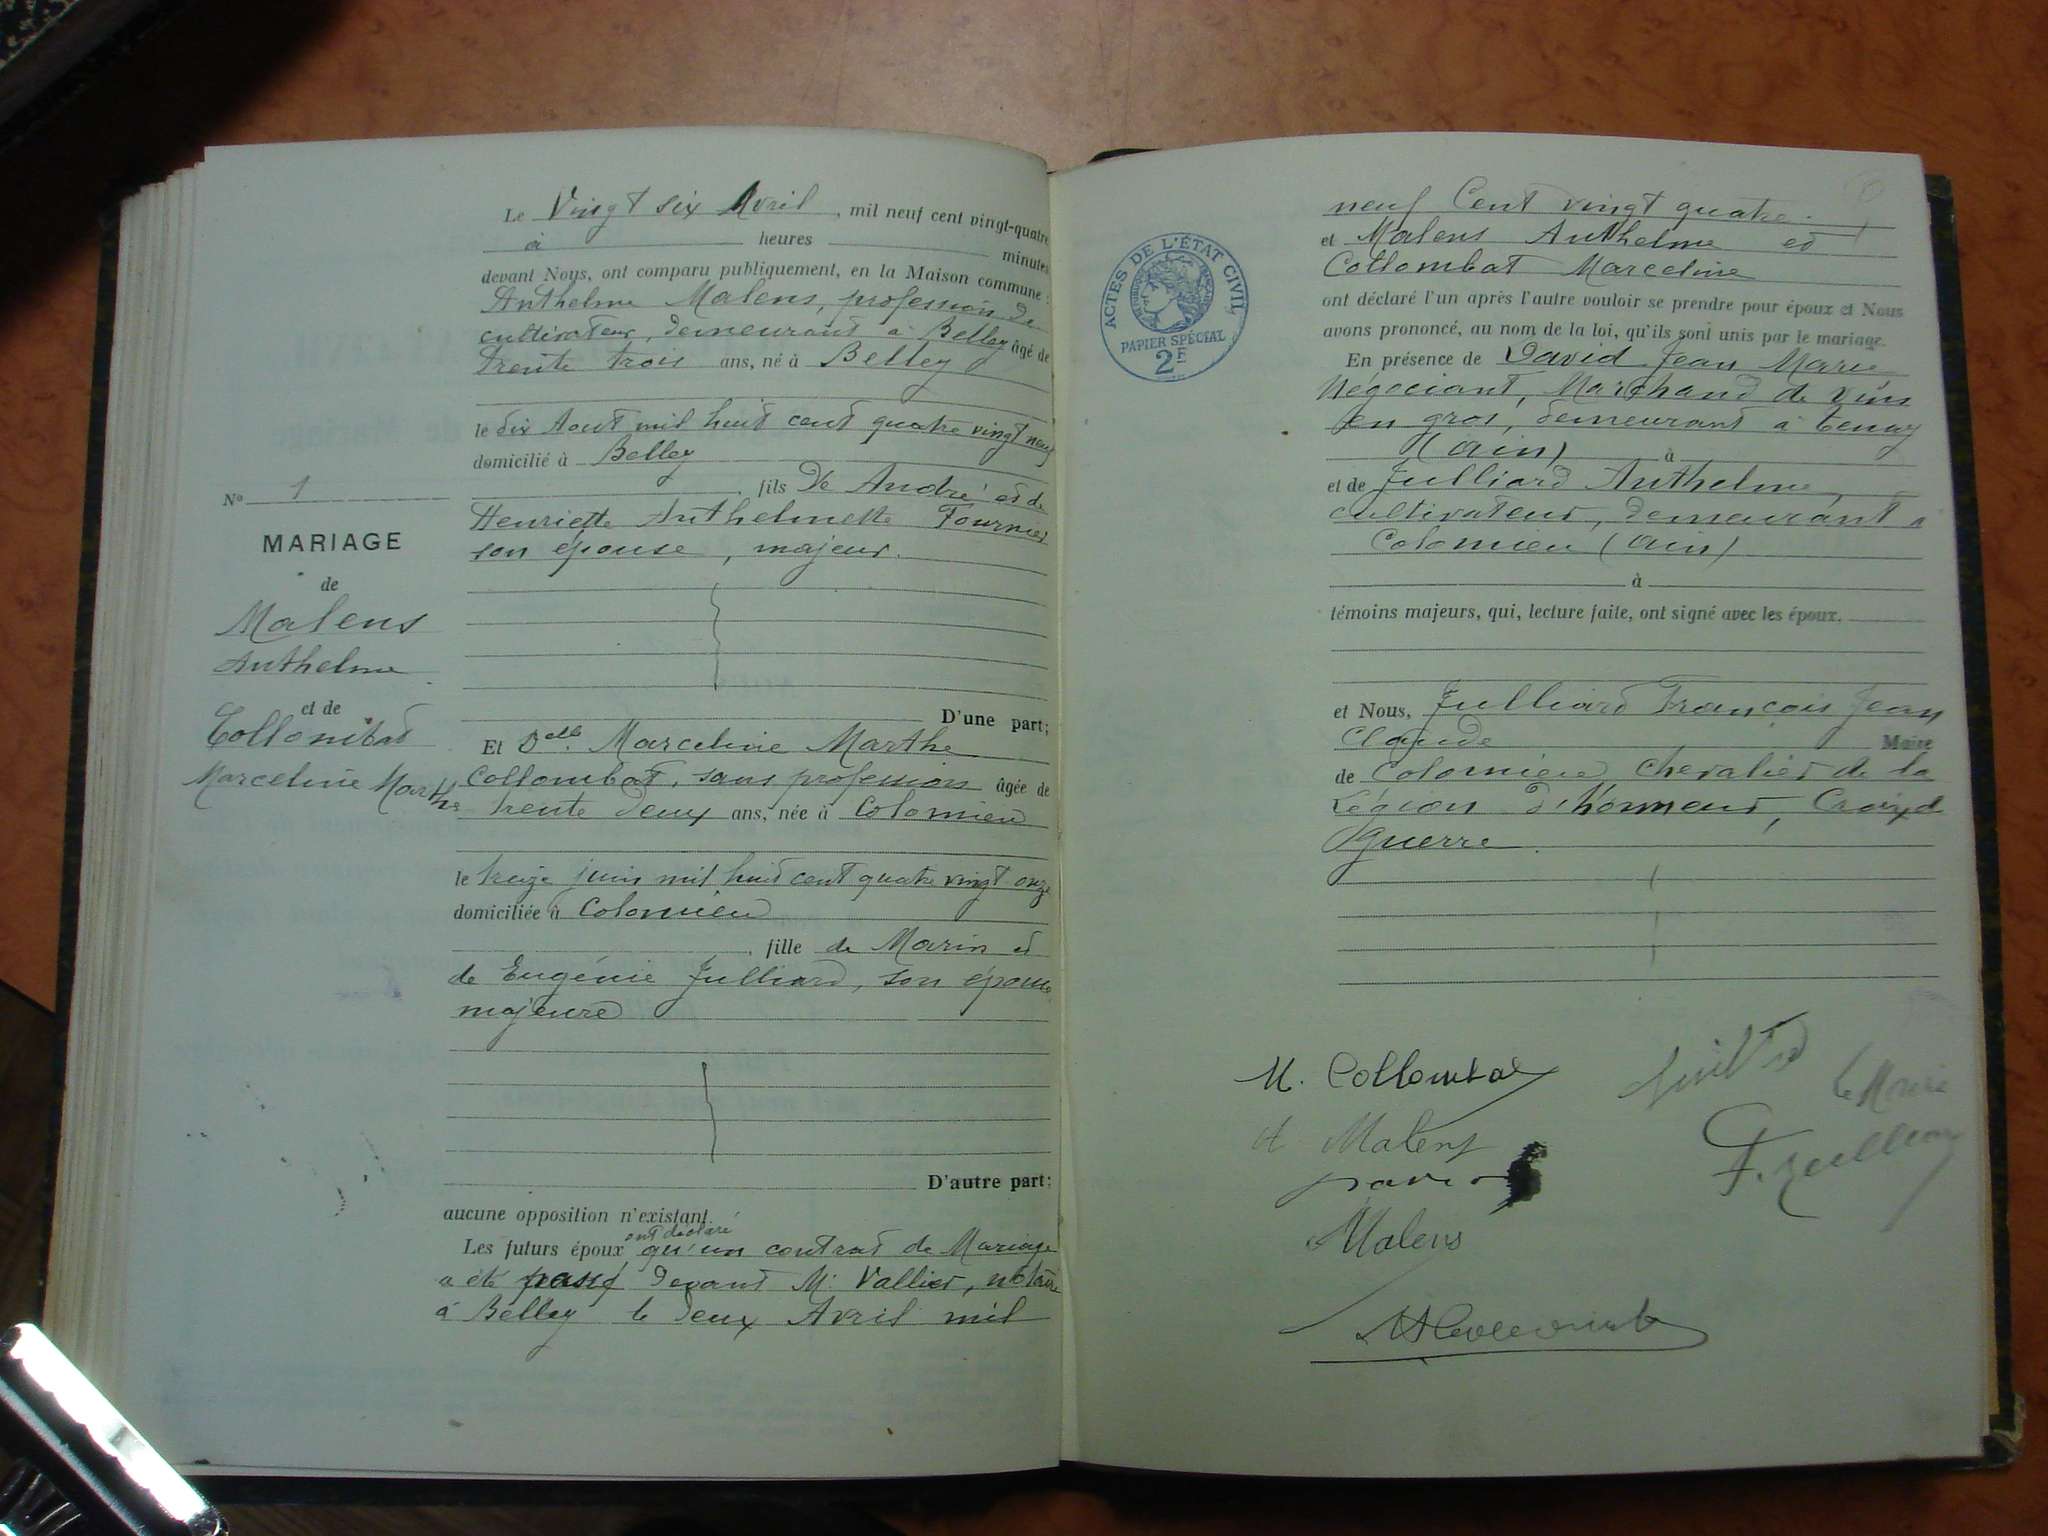 Le Vingt six Avril, mil neuf cent vingt-quatre
à heures minutes
devant Nous, ont comparu publiquement, en la Maison commune :
Anthelme Malens, profession de
cultivateur, demeurant à Belley âgé de
trente trois ans, né à Belley
le dix Aout mil huit cent quatre vingt neuf
domicilié à Belley
fils De André et de
Henriette Anthelmette Fournier
son épouse, majeur.
D'une part;
Et Delle Marceline Marthe
Collombat, sans profession âgée de
trente deux ans, née à Colomieu
le treize juin mil huit cent quatre vingt onze
domiciliée à Colomieu
, fille de Marin et
de Eugénie Julliard, son épouse
majeure
D'autre part:
aucune opposition n'existant.
Les futurs époux ont déclaré qu'un contrat de Mariage
a été passé devant M. Vallier, notaire
à Belley le deux Avril mil
N° 1
MARIAGE
de
Malens
Anthelme
et de
Collombat
Marceline Marthe
ACTES DE L'ÉTAT CIVIL
PAPIER SPÉCIAL
2F
neuf Cent vingt quatre.
et Malens Anthelme et
Collombat Marceline
ont déclaré l'un après l'autre vouloir se prendre pour époux et Nous
avons prononcé, au nom de la loi, qu'ils sont unis par le mariage.
En présence de David Jean Marie
Négociant, Marchand de vins
en gros, demeurant à Tenay
(Ain) à
et de Julliard Anthelme,
cultivateur, demeurant à
Colomieu (Ain)
à
témoins majeurs, qui, lecture faite, ont signé avec les époux.
et Nous, Julliard François Jean
Claude Maire
de Colomieu chevalier de la
Légion d'honneur, Croix de
guerre.
M. Collombat
A Malens
David
Malens
Le Maire
F. Julliard